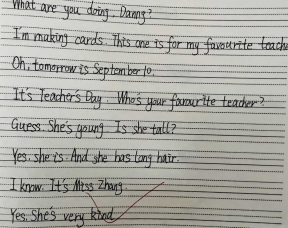 What are you doing, Danny?
I'm making cards. This one is for my favourite teache
Oh, tomorrow is September 10.
It's Teacher's Day. Who's your favourite teacher?
Guess. She's young Is she tall?
Yes, she is. And she has long hair.
I know. It's Miss Zhang.
Yes. She's very kind